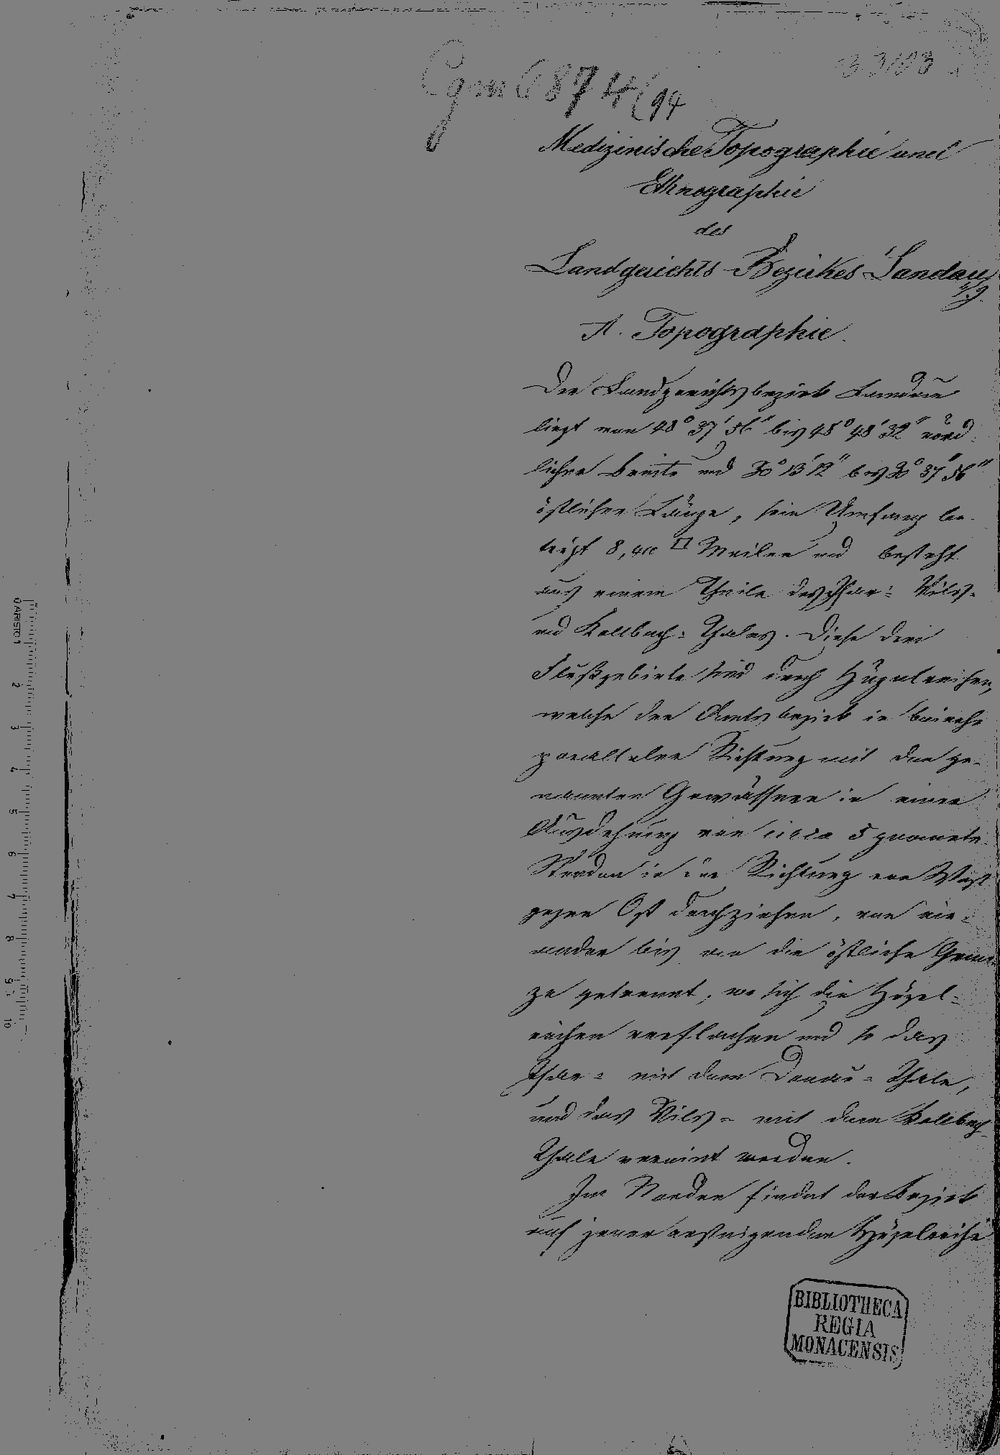 Cgm 6874(94
Medizinische Topographie und
Ethnographie
des
Landgerichts-Bezirkes Landau
a/I.
A. Topographie.
Der Landgerichtsbezirk Landau
liegt von 48° 37' 56" bis 48° 48' 32" nörd-
licher Breite und 30° 13' 12" bis 30° 37' 56"
östlicher Länge, sein Umfang be-
trägt 8, □ Meilen und besteht
aus einem Theile des Isar= Vils=
und Kollbach= Thales. Diese drei
Flußgebiete sind durch Hügelreihen,
welche den Amtsbezirk in beinahe
paralleler Richtung mit den ge-
nannten Gewässern in einer
Ausdehnung von circa 5 geometr.
Stunden in der Richtung von West
gegen Ost durchziehen, von ein-
ander bis an die östliche Gren-
ze getrennt, wo sich die Hügel-
reihen verflachen und so das
Isar= mit dem Donau= Thale,
und das Vils= mit dem Kollbach-
Thale vereint werden.
Im Norden findet der Bezirk
auf jener aufsteigenden Hügelreihe
BIBLIOTHECA
REGIA
MONACENSIS